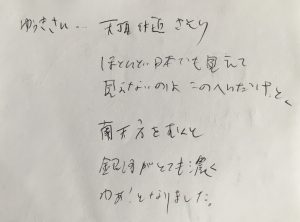 ゆうきさん… 天頂付近 さそり
ほとんど日本でも見えて
見えないのは このへんだけ。と、
南天方をむくと
銀河がとても濃く
わあ!となりました。